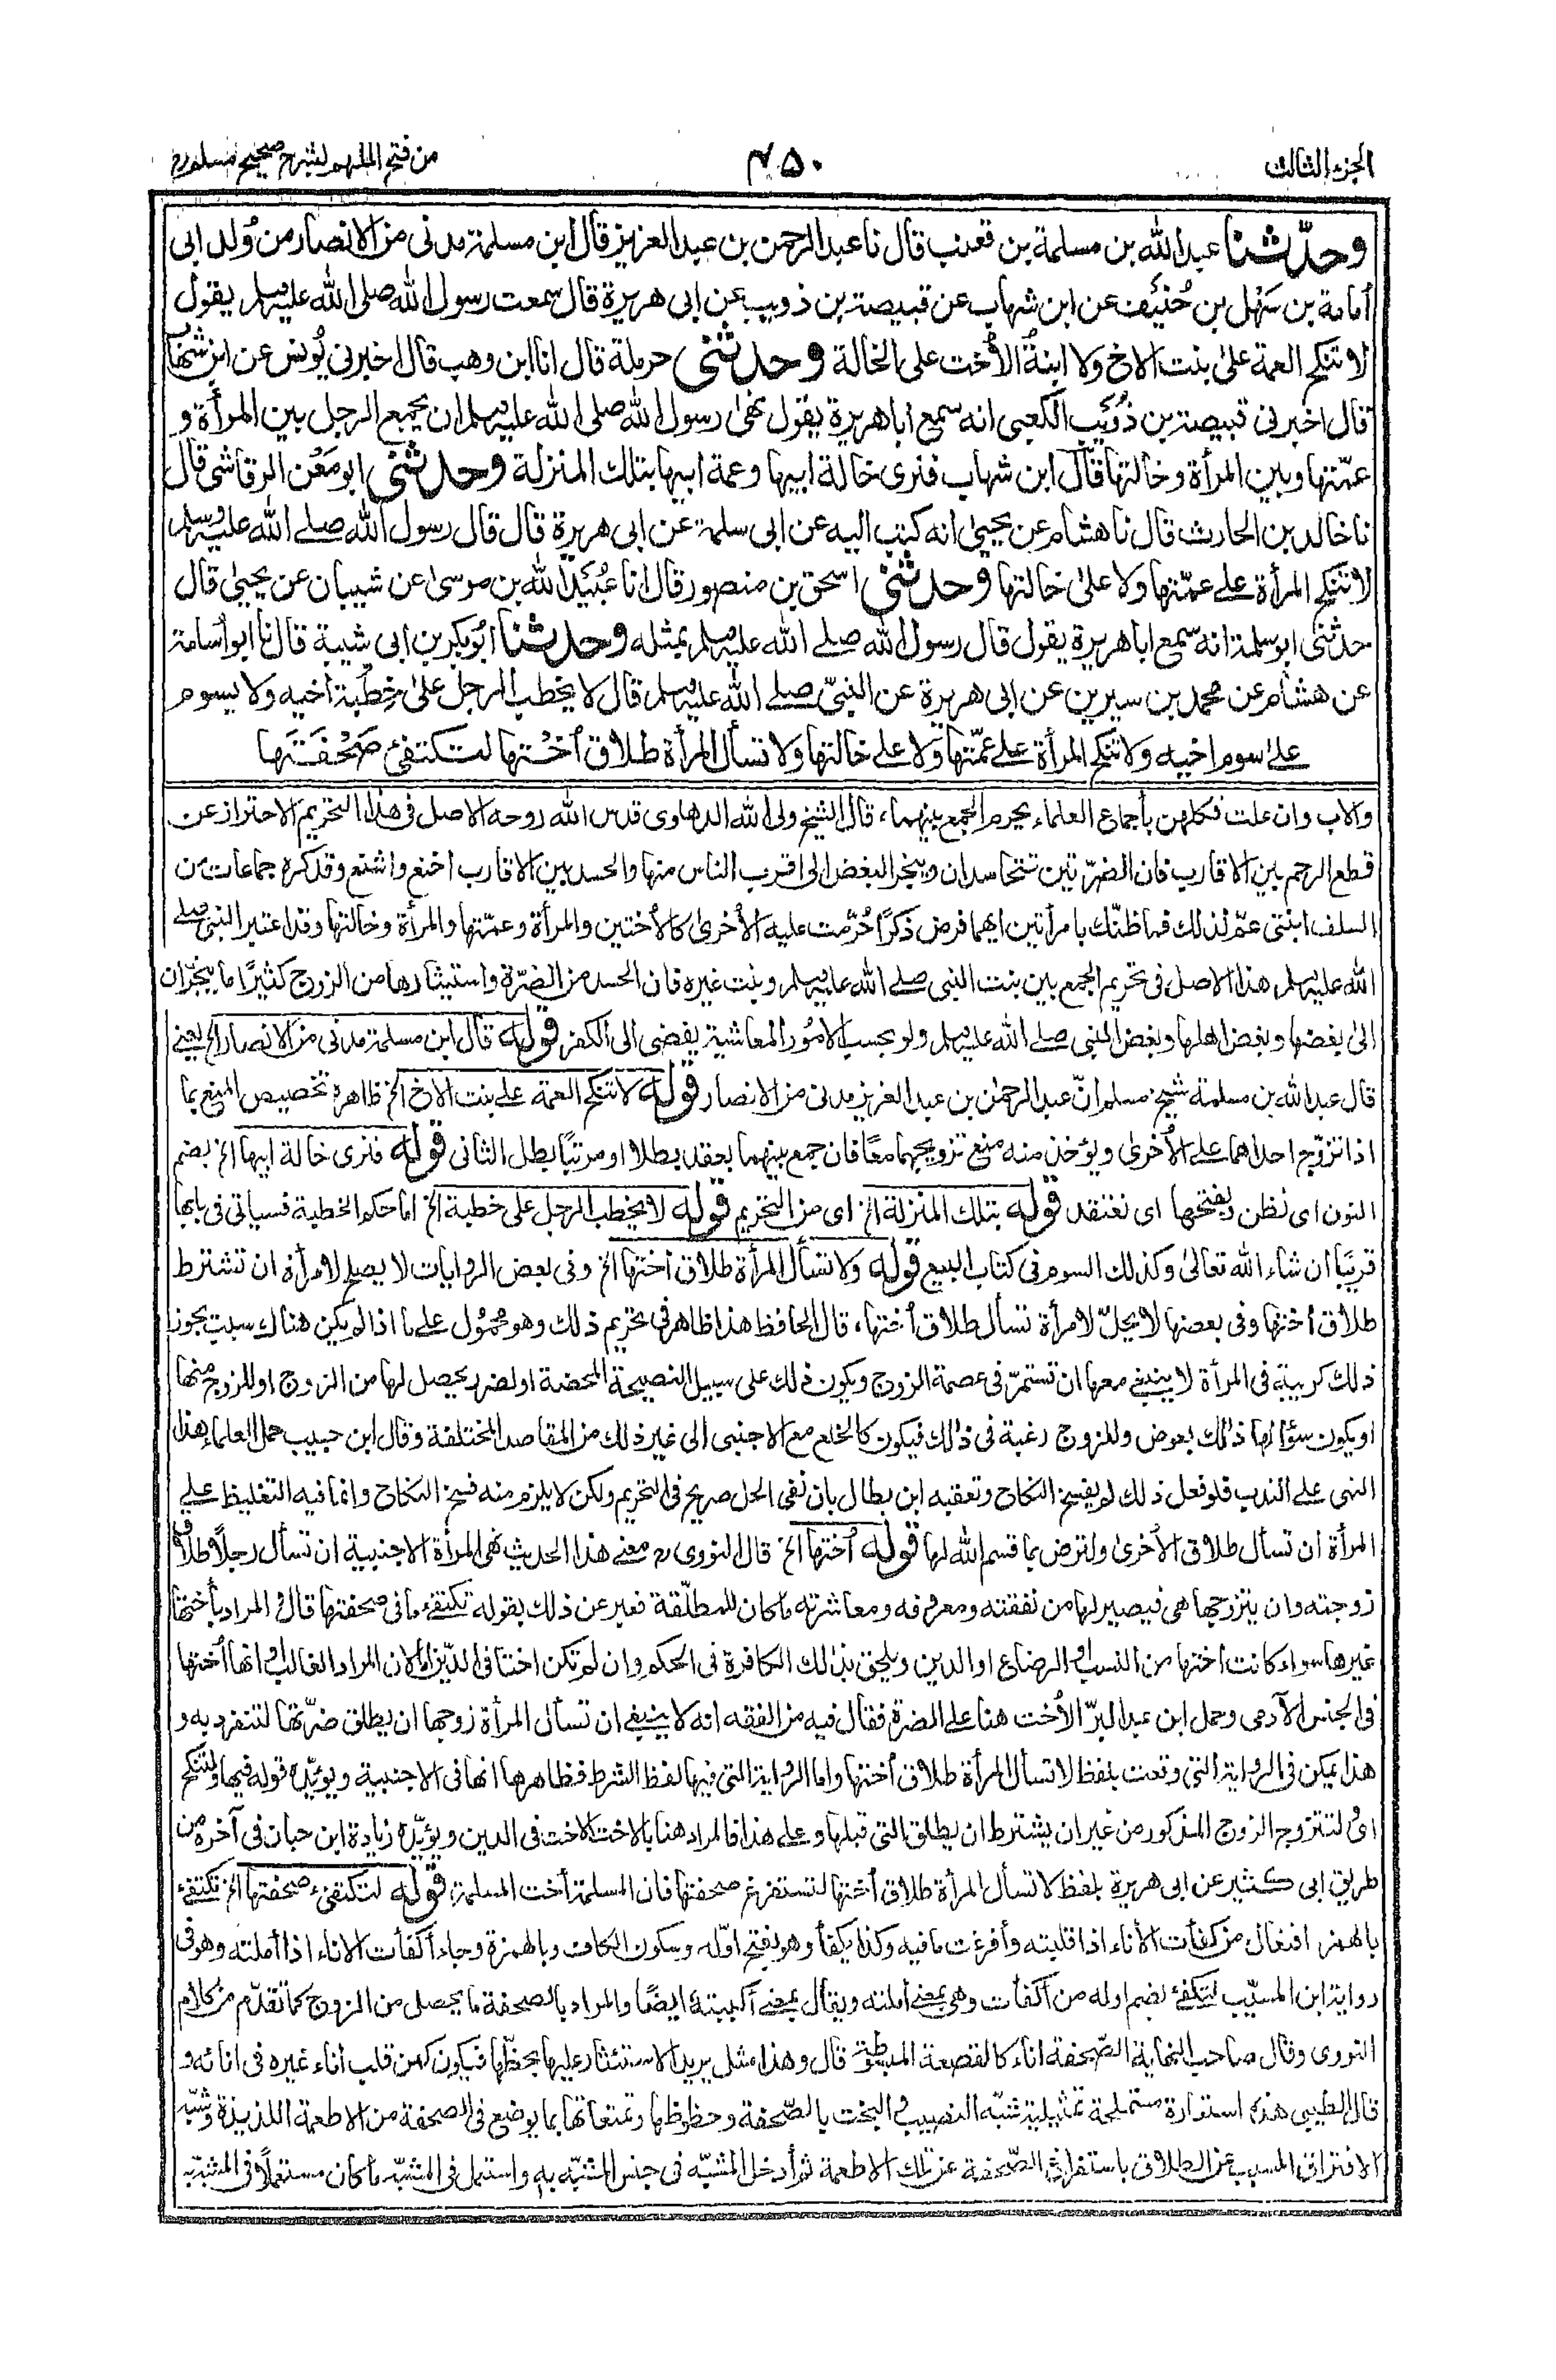 الجزء الثالث
٤٥٠
من فتح الملهم لشرح صحيح مسلم رح
وحدّثنا عبد الله بن مسلمة بن قعنب قال نا عبد الرحمن بن عبد العزيز قال ابن مسلمة مدنى من الانصار من وُلد ابى
أمامة بن سَهْل بن حُنَيْف عن ابن شهاب عن قبيصة بن ذويب عن ابى هريرة قال سمعت رسول الله صلى الله عليه وسلم يقول
لا تنكح العمة علىٰ بنت الاخ ولا ابنةُ الأخت على الخالة وحدثنى حرملة قال انا ابن وهب قال اخبرنى يُونس عن ابن شهاب
قال اخبرنى قبيصة بن ذُؤَيب الكعبى انه سمع ابا هريرة يقول نهىٰ رسول الله صلى الله عليه وسلم ان يجمع الرجل بين المرأة و
عمّتها وبين المرأة وخالتها قال ابن شهاب فنرى خالة ابيها وعمة ابيها بتلك المنزلة وحدثنى ابو مَعْن الرقاشى قال
نا خالد بن الحارث قال نا هشام عن يحيىٰ انه كتب اليه عن ابى سلمة عن ابى هريرة قال قال رسول الله صلے الله عليه وسلم
لا تنكح المرأة علے عمّتها ولا علىٰ خالتها وحدثنى اسحق بن منصور قال انا عُبَيْد الله بن موسىٰ عن شيبان عن يحيىٰ قال
حدثنى ابو سلمة انه سمع ابا هريرة يقول قال رسول الله صلے الله عليه وسلم بمثله وحدثنا ابو بكر بن ابى شيبة قال نا ابو أسامة
عن هشام عن محمد بن سيرين عن ابى هريرة عن النبىّ صلے الله عليه وسلم قال لا يخطب الرجل علىٰ خِطْبة اخيه ولا يسوم
علىٰ سوم اخيه ولا تنكح المرأة علے عمّتها ولا علے خالتها ولا تسأل المرأة طلاق أخْتها لتكتفئ صَحْفَتَها
والاب وان علت فكلهن بأجماع العلماء يحرم الجمع بينهما، قال الشيخ ولى الله الدهلوى قدس الله روحه الاصل فى هذا التحريم الاحتراز عن
قطع الرحم بين الاقارب فان الضرّتين تتحاسدان وينجر البغض الى اقرب الناس منها والحسد بين الاقارب اخنع واشنع وقد كره جماعات من
السلف ابنتى عمّ لذلك فما ظنّك بامرأتين ايهما فرض ذكرًا حُرّمت عليه الأخرىٰ كالأختين والمرأة وعمّتها والمرأة وخالتها وقد اعتبر النبى صلے
الله عليه وسلم هذا الاصل فى تحريم الجمع بين بنت النبى صلے الله عليه وسلم وبنت غيره فان الحسد من الضرّة واستيثارها من الزوج كثيرًا ما ينجرّان
الىٰ بغضها وبغض اهلها وبغض النبى صلے الله عليه وسلم ولو بحسب الامُور المعاشية يفضى الى الكفر قوله قال ابن مسلمة مدنى من الانصار الخ يعنے
قال عبد الله بن مسلمة شيخ مسلم انّ عبد الرحمٰن بن عبد العزيز مدنى من الانصار قوله لا تنكح العمة علے بنت الاخ الخ ظاهره تخصيص المنع بما
اذا تزوّج احداهما علے الأخرىٰ ويؤخذ منه منع تزويجهما معًا فان جمع بينهما بعقد بطلا او مرتبًا بطل الثانى قوله فنرى خالة ابيها الخ بضم
النون اى نظن وبفتحها اى نعتقد قوله بتلك المنزلة الخ اى من التحريم قوله لا يخطب الرجل على خطبة الخ اما حكم الخطبة فسيأتى فى بابها
قريبًا ان شاء الله تعالىٰ وكذلك السوم فى كتاب البيع قوله ولا تسأل المرأة طلاق أختها الخ وفى بعض الروايات لا يصلح لامرأة ان تشترط
طلاق أختها وفى بعضها لا يحلّ لامرأة تسأل طلاق أختها، قال الحافظ هذا ظاهر فى تحريم ذلك وهو محمُول علے ما اذا لم يكن هناك سبب يجوز
ذلك كريبة فى المرأة لا ينبغے معها ان تستمرّ فى عصمة الزوج ويكون ذلك على سبيل النصيحة المحضة او لضرر يحصل لها من الزوج او للزوج منها
او يكون سؤالها ذلك بعوض وللزوج رغبة فى ذلك فيكون كالخلع مع الاجنبى الى غير ذلك من المقاصد المختلفة وقال ابن حبيب حمل العلماء هذا
النهى علے الندب فلو فعل ذلك لم يفسخ النكاح وتعقبه ابن بطال بان نفى الحل صريح فى التحريم ولكن لا يلزم منه فسخ النكاح وانما فيه التغليظ علے
المرأة ان تسأل طلاق الأخرىٰ ولترض بما قسم الله لها قوله أختها الخ قال النووى رح معنے هذا الحديث نهى المرأة الاجنبية ان تسأل رجلًا طلاق
زوجته وان يتزوجها هى فيصير لها من نفقته ومعروفه ومعاشرته ما كان للمطلّقة فعبر عن ذلك بقوله تكتفئ ما فى صحفتها قال والمراد بأختها
غيرها سواء كانت اختها من النسب او الرضاع او الدين ويلحق بذلك الكافرة فى الحكم وان لم تكن اختا فى الدّين اما لان المراد الغالب او انها أختها
فى الجنس الآدمى وحمل ابن عبد البرّ الأخت هنا على الضرة فقال فيه من الفقه انه لا ينبغے ان تسأل المرأة زوجها ان يطلق ضرّتها لتنفرد به و
هذا يمكن فى الرواية التى وقعت بلفظ لا تسأل المرأة طلاق أختها واما الرواية التى فيها لفظ الشرط فظاهرها انها فى الاجنبية ويؤيّده قوله فيها ولتنكح
اىْ لتتزوج الزوج المذكور من غير ان يشترط ان يطلق التى قبلها وعلے هذا فالمراد هنا بالاخت الاخت فى الدين ويؤيّده زيادة ابن حبان فى آخره من
طريق ابى كثير عن ابى هريرة بلفظ لا تسأل المرأة طلاق أختها لتستفرغ صحفتها فان المسلمة أخت المسلمة، قوله لتكتفئ صحفتها الخ تكتفئ
بالهمز افتعال من كفأت الأناء اذا قلبته وأفرغت ما فيه وكذا يكفأ وهو بفتح اوّله وسكون الكاف وبالهمزة وجاء أكفأت الاناء اذا أملته وهو فى
رواية ابن المسيّب لتكفئ بضم اوله من أكفأت وهى بمعنے أملته ويقال بمعنے أكببته ايضًا والمراد بالصحفة ما يحصل من الزوج كما تقدّم من كلام
النووى وقال صاحب النهاية الصّحفة اناء كالقصعة المبسوطة قال وهذا مثل يريد الاستئثار عليها بحظّها فيكون كمن قلب أناء غيره فى انائه و
قال الطيبى هذه استعارة مستملحة تمثيلية شبّه النصيب والبخت بالصّحفة وحظوظها وتمتعاتها بما يوضع فى الصحفة من الاطعمة اللذيذة وشبّه
الافتراق المسبب عن الطلاق باستفراغ الصّحفة عن تلك الاطعمة ثم أدخل المشبّه فى جنس المشبّه به واستعمل فى المشبّه ما كان مستعملًا فى المشبّه